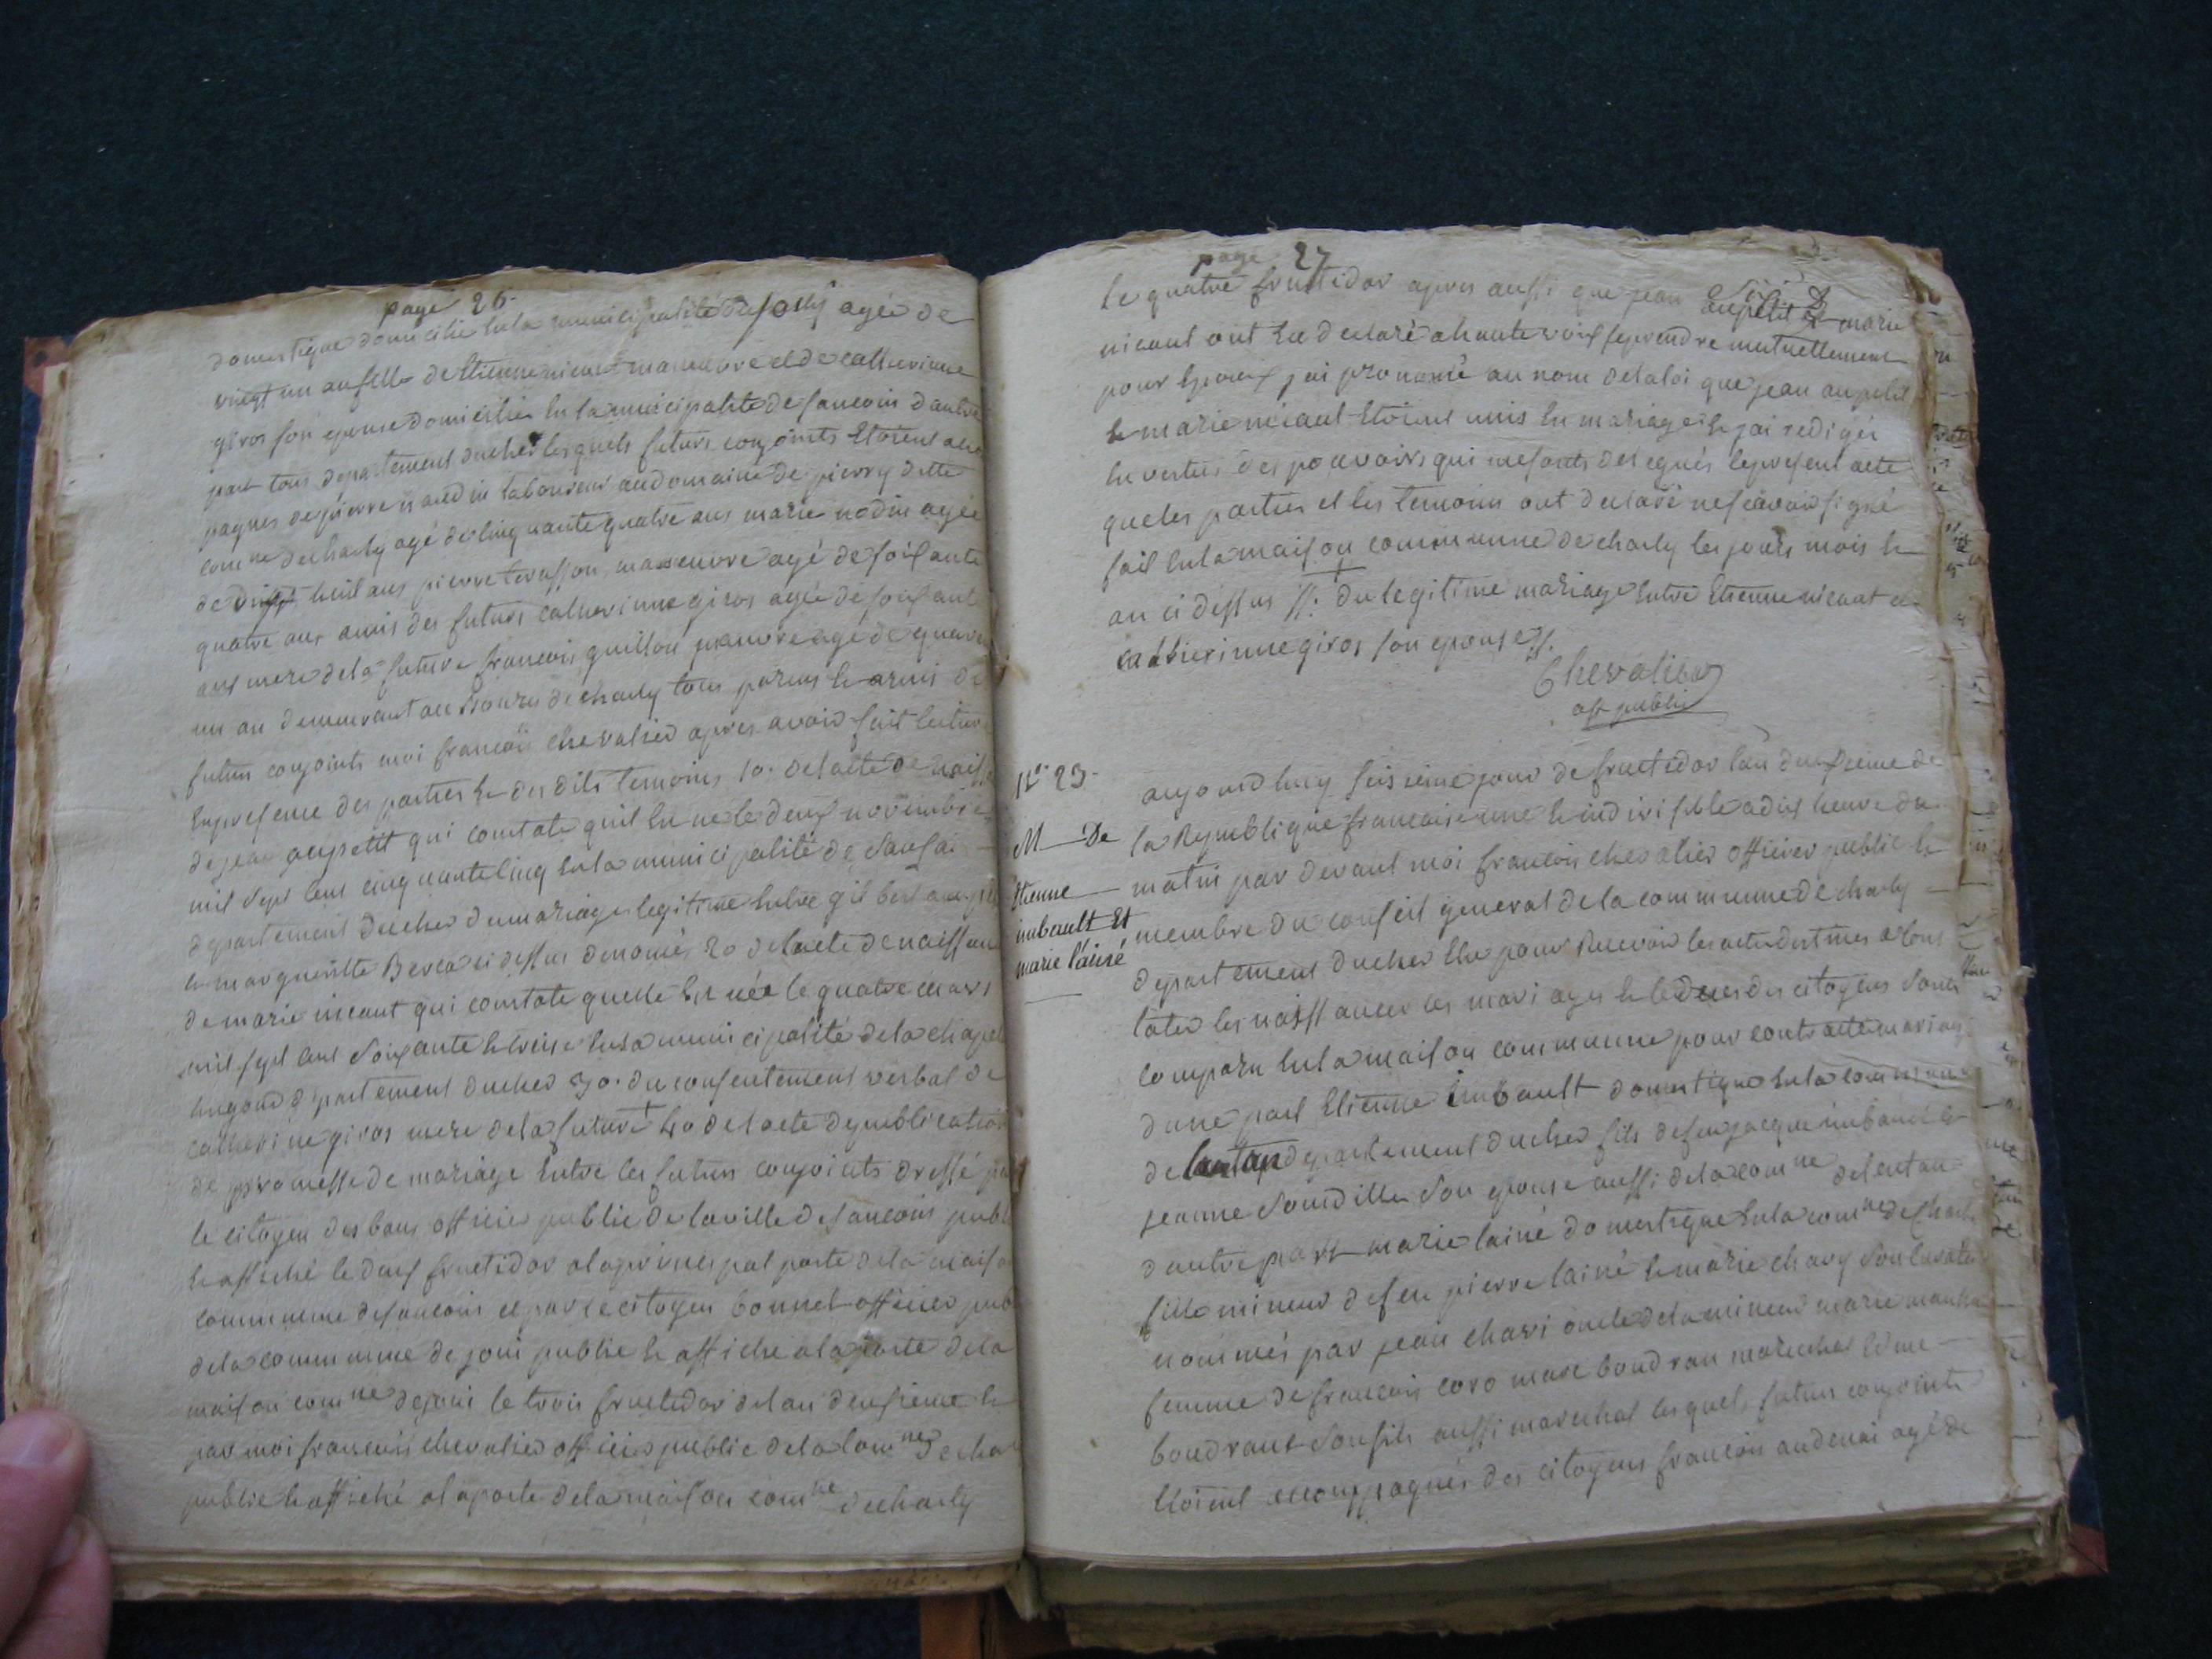 page 26.
domestique domicilié en la municipalité de jouy agée de
vingt un an fille de Etienne nicaut manœuvre et de catherinne
giros son epouse domicilié en la municipalité de sancoin d'autre
part tous departement du cher lesquels futurs conjoints etoient accom
pagnes de pierre laboureur au domaine de pierry dette
comne decharly agé de cinquante quatre ans marie nodin agée
de huit ans pierre terasson manœuvre agé de soixante
quatre ans amis des futurs catherinne giros agée de soixante
ans mere dela future francois guillou manœuvre agé de quarente
un an demeurant au bourg de charly tous parens & amis des
futurs conjoints moi francois chevalier apres avoir fait lecture
en presence des parties & des dits temoins 10. delacte de naiss
de jean aupetit qui constate quil est ne le deux novembre
mil sept cens cinquante cinq en la municipalité de
departement ducher du mariage legitime entre gilbert aupetit
& margueritte Berca ci dessus denomés 20 delacte de naissance
de marie nicaut qui constate quelle est née le quatre mars
mil sept cens soixante & treise en la municipalité de la chapel
hugond departement ducher 30. du consentement verbal de
catherine giros mere dela future + 40 de lacte de publication
de promesse de mariage entre les futurs conjoints dressé par
le citoyen des bans officier public de laville de sancoins publié
& affiché le deux fructidor alaprincipal porte dela maison
commune desancoin et par le citoyen bonnet officier public
dela commune de joui publié & affiché ala porte dela
maison comne dejoui le trois fructidor delan deuxieme &
par moi francois chevalier officier public dela comne de charly
publié & affiché ala porte dela maison comne decharly
page 27
le quatre fructidor apres aussi que jean aupetit & marie
nicaut ont eu declaré ahaute voix seprendre mutuellement
pour epoux jai prononcé au nom delaloi que jean aupetit
& marie nicaut etoient unis en mariage & jai redigée
en vertus des pouvoirs qui mesonts delegués lepresent acte
queles parties et les temoins ont declaré nescavoir signé
fait enla maison commune de charly les jours mois &
an ci dessus //: + du legitime mariage entre Etienne nicaut et
catherinne giros son epouse //.
Chevalier
off public
Nº 23.
M De
Etienne
imbault Et
marie lainé
aujourdhuy seisieme jour de fructidor lan deuxieme de
la Republique francaise une & indivisible adix heure du
matin par devant moi francois chevalier officier public &
membre du conseil general de la commune de charly
departement ducher elu pour recevoir les actes destines acons
tater les naissances les mariages & le deces des citoyens sont
comparu enla maison commune pour contracter mariage
dune part Etienne imbault domestique enla commune
de lantan departement ducher fils defeu jacque imbault &
jeanne sourdille son epouse aussi dela comne delantan
dautre part marie lainé domestique enla comne de charly
fille mineur defeu pierre lainé & marie chary son curateur
nommés par jean chari oncle dela mineur marie
femme de francois coro marc boudran marechal Edme
boudrant son fils aussi marechal lesquels futurs conjoints
etoient accompagnés des citoyens francois audenai agé de